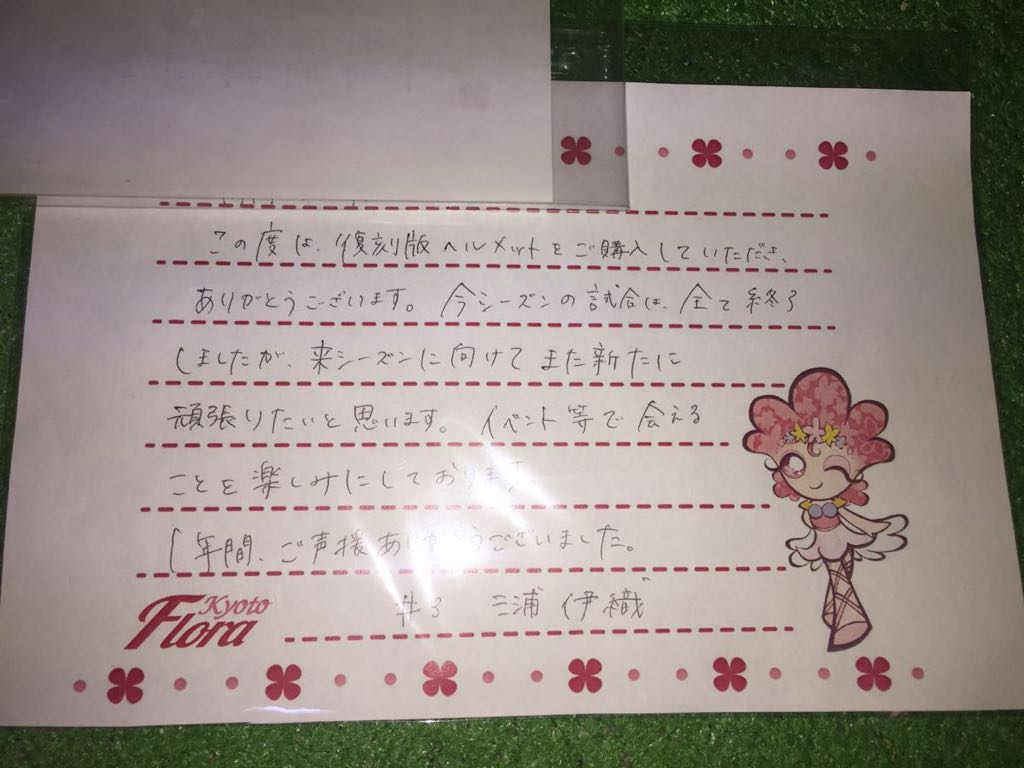 この度は、復刻版ヘルメットをご購入していただき、
ありがとうございます。今シーズンの試合は、全て終了
しましたが、来シーズンに向けてまた新たに
頑張りたいと思います。イベント等で会える
ことを楽しみにしております
1年間、ご声援ありがとうございました。
#3 三浦 伊織
Kyoto
Flora